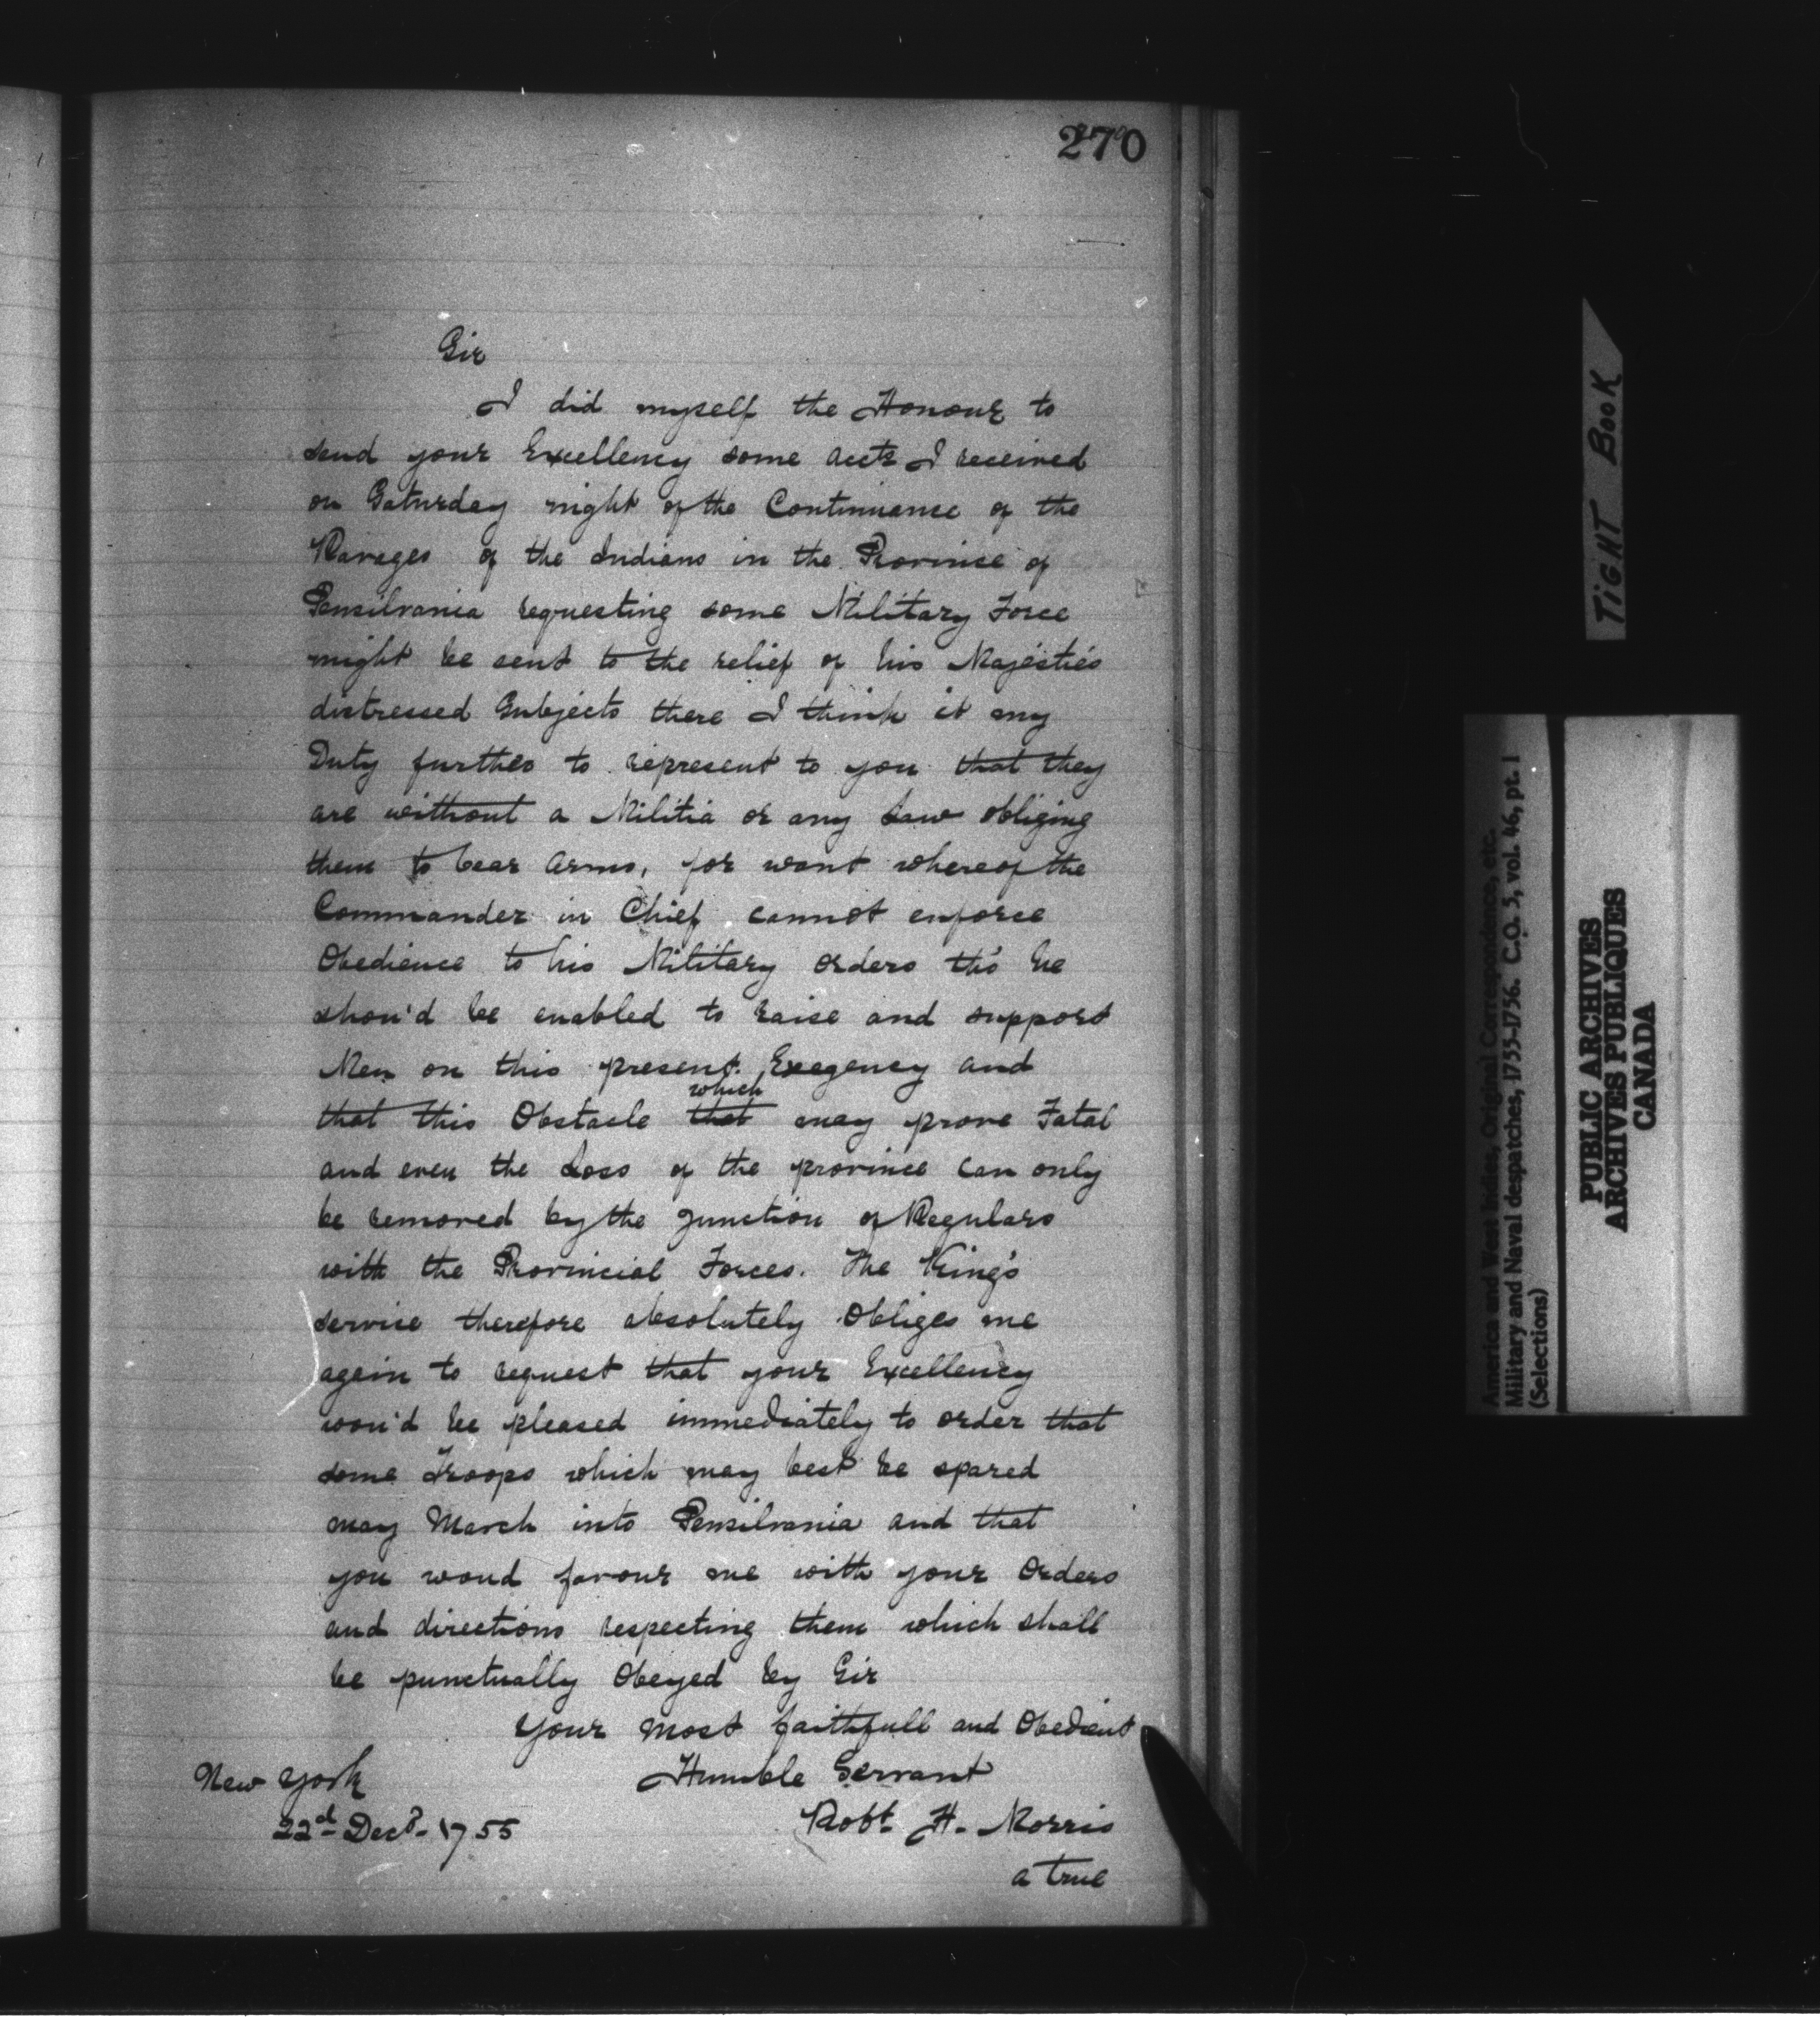 270
Sir
I did myself the Honour to
send your Excellency some acct's I received
on Saturday night of the Continuance of the
Ravages of the Indians in the Province of
Pensilvania requesting some Military Force
might be sent to the relief of his Majestie's
distressed Subjects there I think it my
Duty further to represent to you that they
are without a Militia or any Law obliging
them to bear arms, for want whereof the
Commander in Chief cannot enforce
Obedience to his Military orders tho' he
shou'd be enabled to raise and support
Men on this present Exegency and
that this Obstacle that which may prove Fatal
and even the Loss of the province can only
be removed by the Junction of Regulars
with the Provincial Forces. The King's
service therefore absolutely Obliges me
again to request that your Excellency
wou'd be pleased immediately to order that
some Troops which may best be spared
may March into Pensilvania and that
you woud favour me with your Orders
and directions respecting them which shall
be punctually Obeyed by Sir
Your most faithfull and Obedient
Humble Servant
Robt H. Morris
New York
22d Decr 1755
a true
TIGHT BOOK
America and West Indies, Original Correspondence, etc.
Military and Naval despatches, 1755-1756. C.O. 5, vol. 46, pt. 1
(Selections)
PUBLIC ARCHIVES
ARCHIVES PUBLIQUES
CANADA